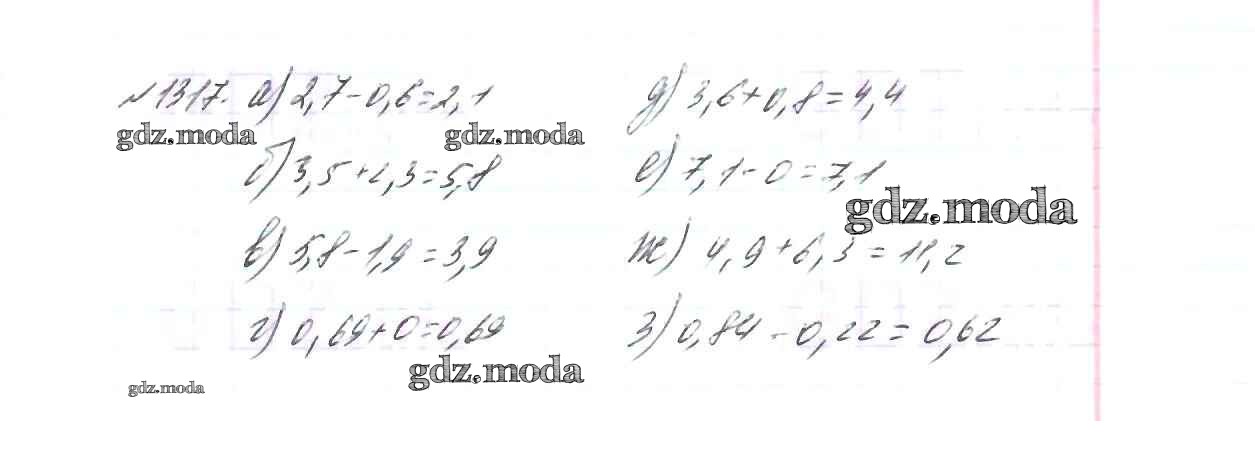 №1317. а) 2,7-0,6=2,1
д) 3,6+0,8=4,4
gdz.moda
gdz.moda
б) 3,5+2,3=5,8
е) 7,1-0=7,1
gdz.moda
в) 5,8-1,9=3,9
ж) 4,9+6,3=11,2
г) 0,69+0=0,69
з) 0,84-0,22=0,62
gdz.moda
gdz.moda